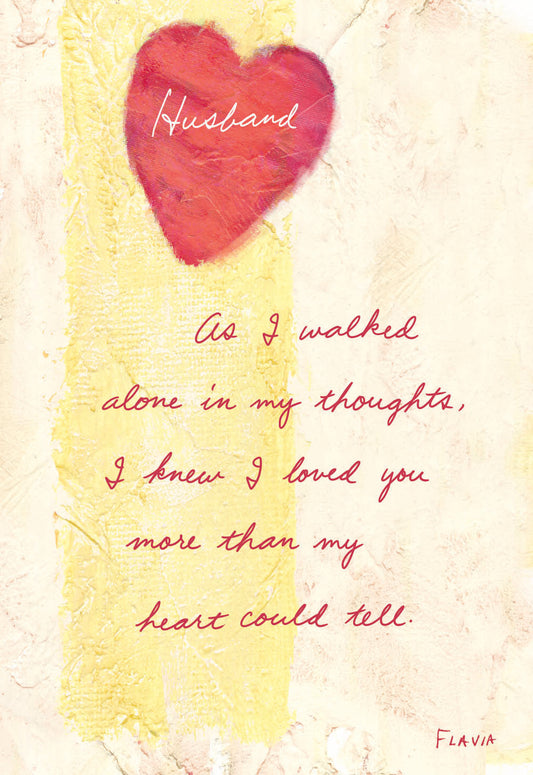 Husband
As I walked
alone in my thoughts,
I knew I loved you
more than my
heart could tell.
FLAVIA